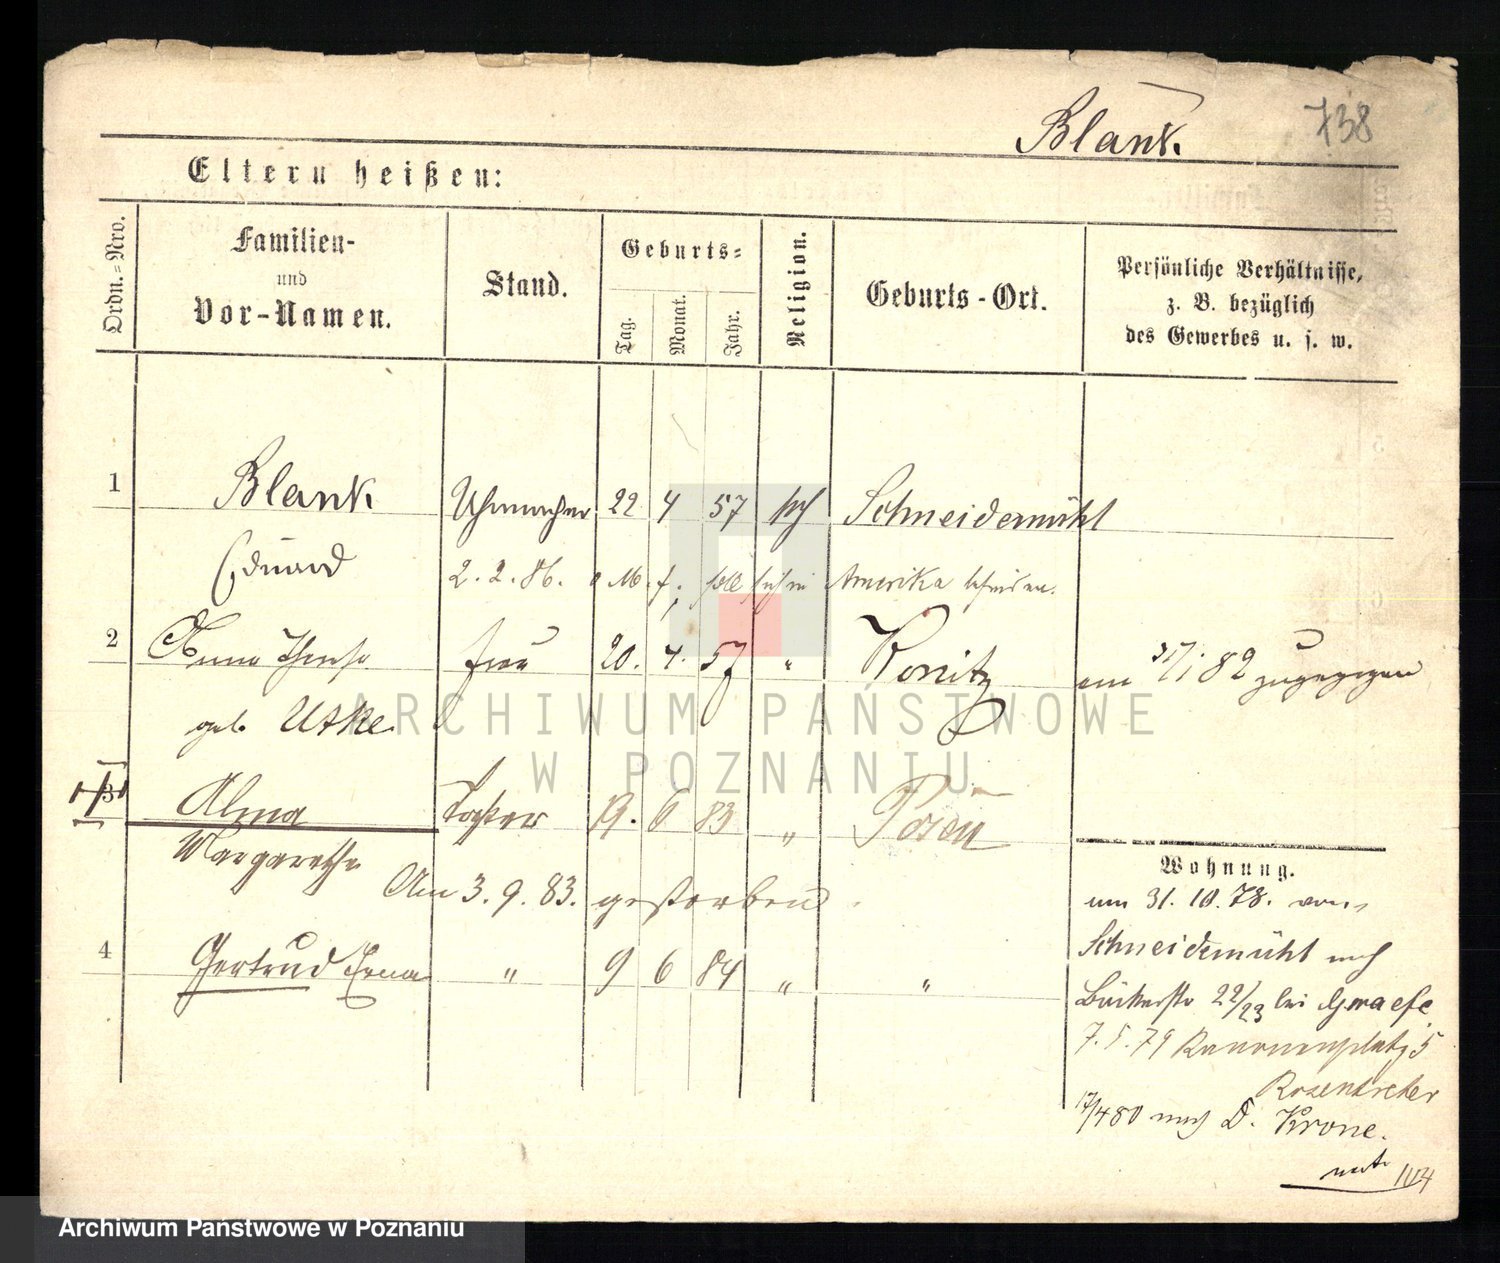 Blank.
738
Eltern heißen:
Ordn.=Nro.
Familien-
und
Vor-Namen.
Stand.
Geburts=
Tag.
Monat.
Jahr.
Religion.
Geburts-Ort.
Persönliche Verhältnisse,
z. B. bezüglich
des Gewerbes u. s. w.
1 Blank Uhrmacher 22 4 57 Schneidemühl
Eduard
2. 2. 86. soll sich in Amerika befinden.
2 Anna Therese Frau 20. 4. 57 " Konitz
am 31/1 82 zugezogen
geb. Utke
3 Alma Tochter 19. 6 83 " Posen
Margarethe
Am 3. 9. 83. gestorben.
4 Gertrud Erna " 9 6 84 " "
Wohnung.
am 31. 10. 78. von
Schneidemühl nach
22/23 bei Graefe
7. 5. 79 Kanonenplatz 5
Rosentreter
17/4 80 nach D. Krone.
1104
ARCHIWUM PAŃSTWOWE
W POZNANIU
Archiwum Państwowe w Poznaniu